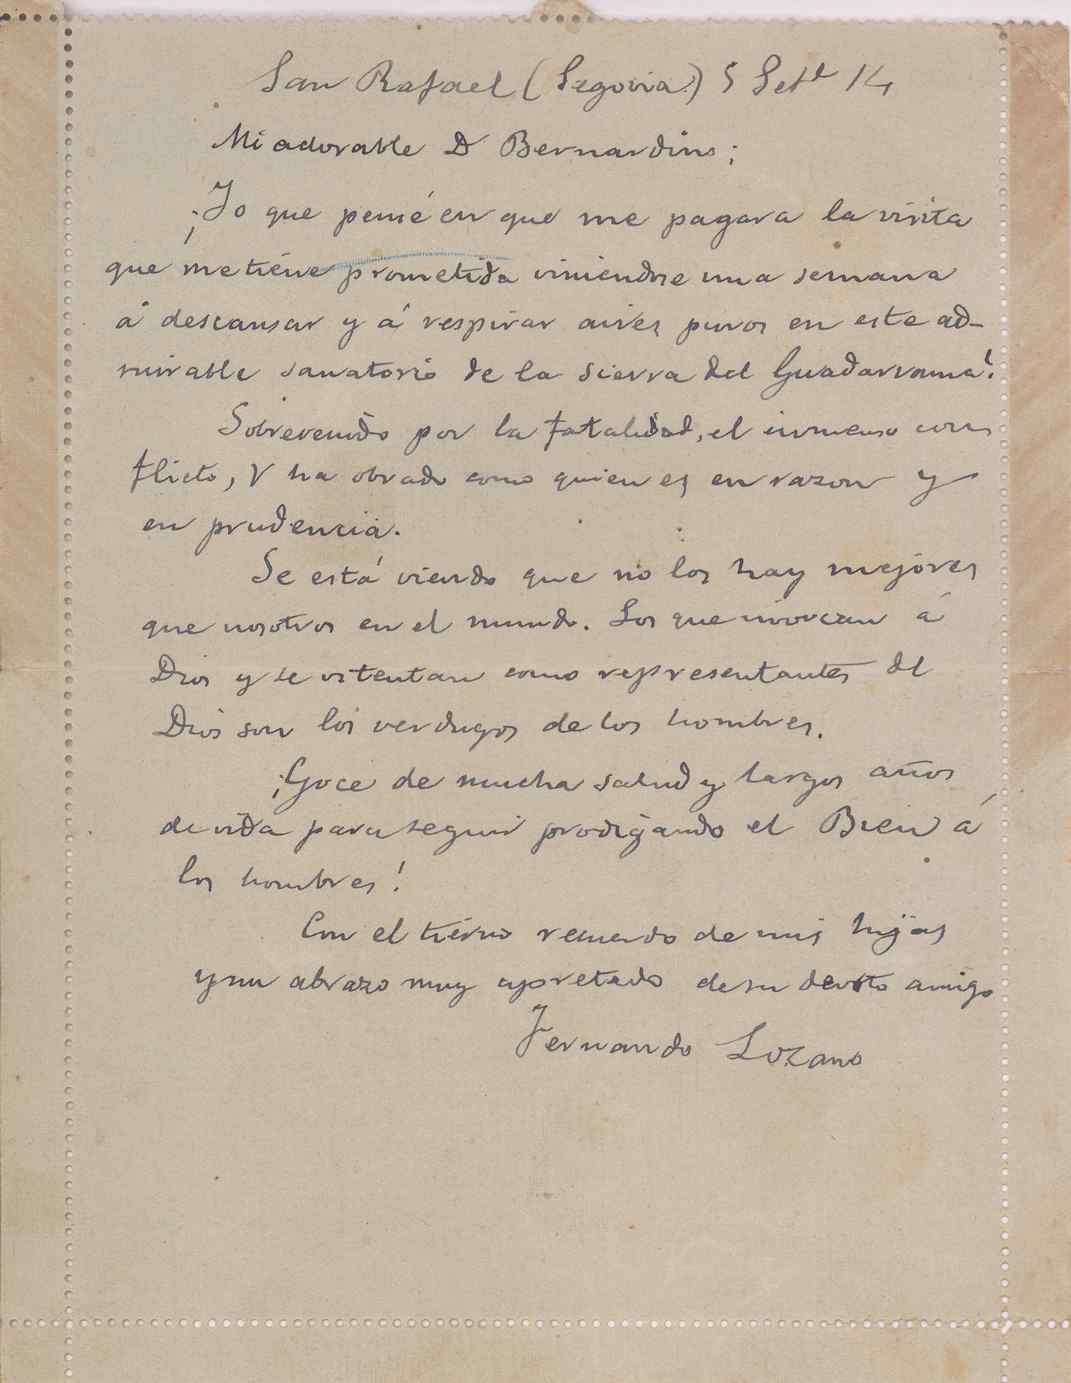 San Rafael (Segovia) 5 Setb 14
Mi adorable D Bernardino;
¡Yo que pensé en que me pagara la visita
que me tiene prometida viniendose una semana
á descansar y á respirar aires puros en este ad-
mirable sanatorio de la Sierra del Guadarrama!
Sobrevenido por la fatalidad, el inmenso con
flicto, V ha obrado como quien es en razon y
en prudencia.
Se está viendo que no los hay mejores
que nosotros en el mundo. Los que invocan á
Dios y se ostentan como representantes de
Dios son los verdugos de los hombres.
¡Goce de mucha salud y largos años
de vida para seguir prodigando el Bien á
los hombres!
Con el tierno recuerdo de mis hijas
y un abrazo muy apretado de su devoto amigo
Fernando Lozano